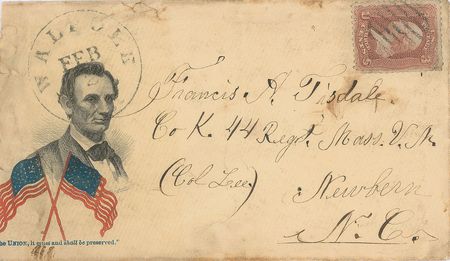 WALPOLE
FEB
Francis A. Tisdale.
Co K. 44 Regt. Mass. V. M.
(Col Lee.)
Newbern
N. C.
he UNION, it must and shall be preserved."